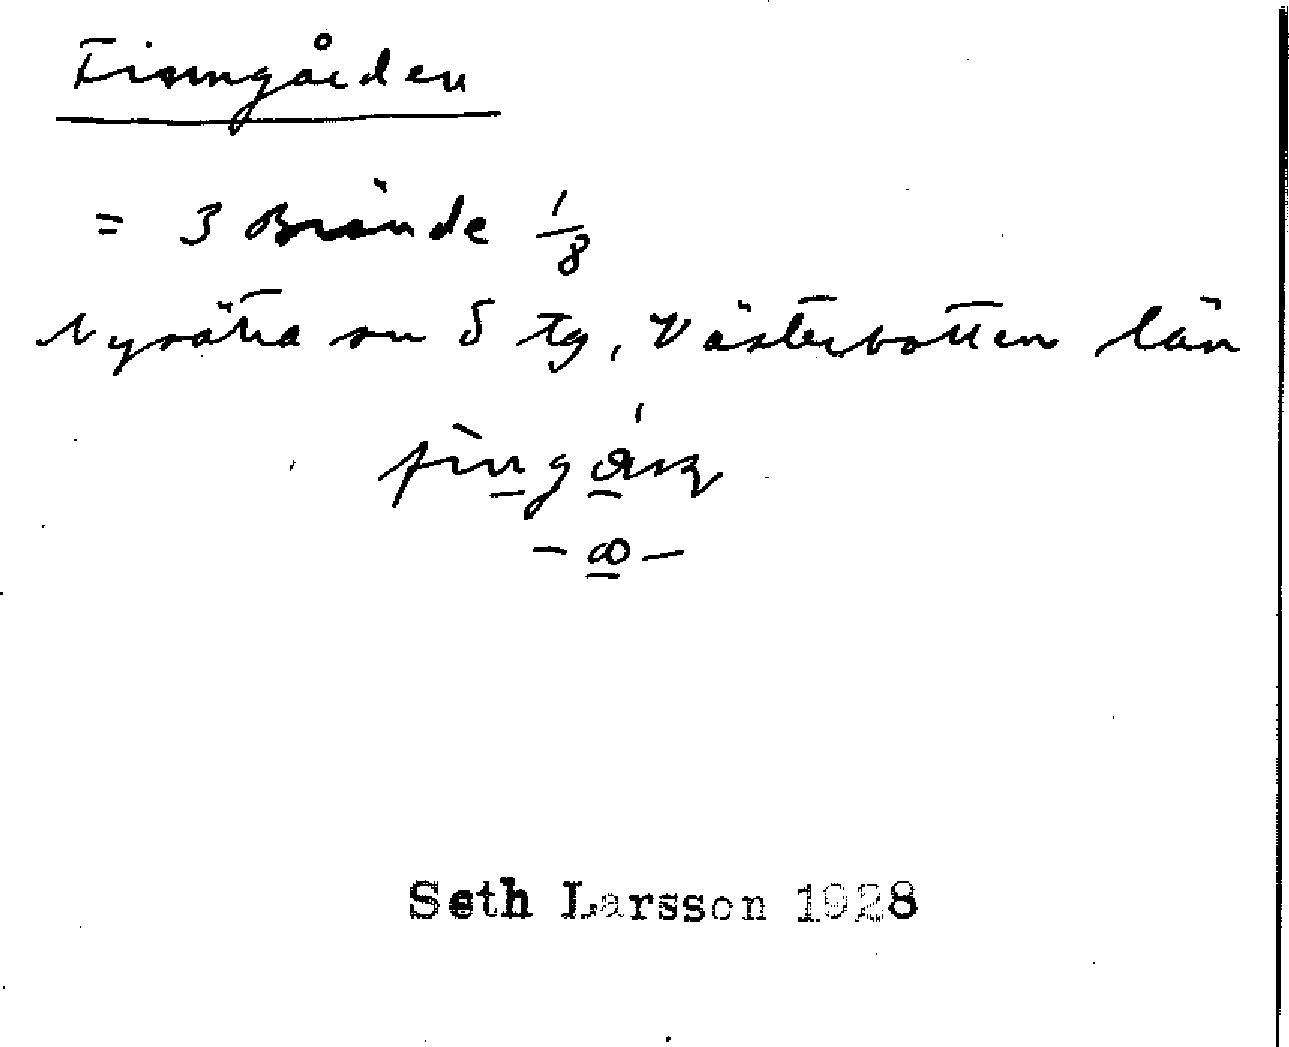 Finngården
= 3 Brände 1/8
Nysätra sn S tg, Västerbotten län
Seth Larsson 1928